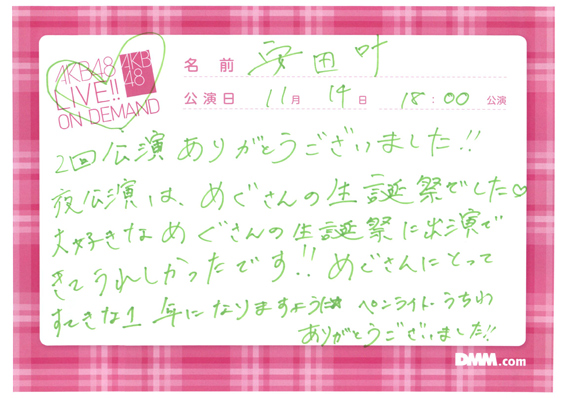 AKB48
LIVE!!
ON DEMAND
AKB
48
名前 安田叶
公演日 11月 14日 18:00 公演
2回公演ありがとうございました!!
夜公演は、めぐさんの生誕祭でした♡
大好きなめぐさんの生誕祭に出演で
きてうれしかったです!! めぐさんにとって
すてきな1年になりますように☆ ペンライト・うちわ
ありがとうございました!!
DMM.com